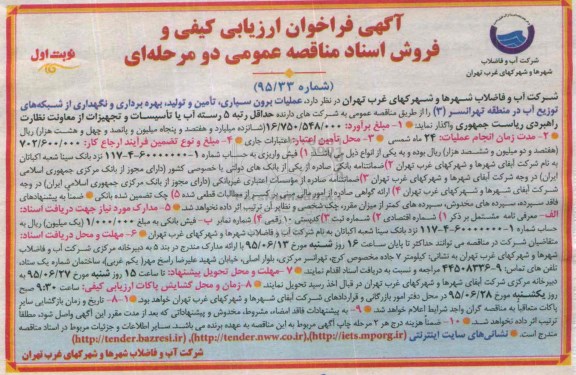 آگهی فراخوان ارزیابی کیفی و
فروش اسناد مناقصه عمومی دو مرحله‌ای
نوبت اول
شرکت آب و فاضلاب
شهرها و شهرکهای غرب تهران
(شماره ۹۵/۳۳)
شرکت آب و فاضلاب شهرها و شهرکهای غرب تهران در نظر دارد، عملیات برون سپاری، تأمین و تولید، بهره برداری و نگهداری از شبکه‌های
توزیع آب در منطقه تهرانسر (۳) را از طریق مناقصه عمومی به شرکت های دارنده حداقل رتبه ۵ رسته آب یا تأسیسات و تجهیزات از معاونت نظارت
راهبردی ریاست جمهوری واگذار نماید: ۱- مبلغ برآورد: ۱۶/۷۵۰/۵۴۸/۰۰۰ (شانزده میلیارد و هفتصد و پنجاه میلیون و پانصد و چهل و هشت هزار) ریال
۲- مدت زمان انجام عملیات: ۲۴ ماه شمسی ۳- محل تأمین اعتبار: اعتبارات جاری ۴- مبلغ و نوع تضمین فرآیند ارجاع کار: ۷۰۲/۶۰۰/۰۰۰
(هفتصد و دو میلیون و ششصد هزار) ریال بوده و به یکی از انواع ذیل می باشند: ۱) فیش واریزی به حساب شماره ۱-۶۰۰۰۰۰۰-۴-۱۱۷ نزد بانک سینا شعبه اکباتان
به نام شرکت آبفای شهرها و شهرکهای غرب تهران ۲) ضمانتنامه بانکی صادره از یکی از بانک های دولتی یا خصوصی کشور (دارای مجوز از بانک مرکزی جمهوری اسلامی
ایران) در وجه شرکت آبفای شهرها و شهرکهای غرب تهران ۳) ضمانتنامه صادره از مؤسسات اعتباری غیربانکی (دارای مجوز از بانک مرکزی جمهوری اسلامی ایران) در وجه
شرکت آبفای شهرها و شهرکهای غرب تهران ۴) ارائه گواهی صادره از امور مالی مبنی بر کسر از مطالبات قطعی شده ۵) چک تضمین شده بانکی ضمناً به پیشنهادهای
فاقد سپرده، سپرده های مخدوش، سپرده های کمتر از میزان مقرر، چک شخصی و نظایر آن ترتیب اثر داده نخواهد شد. ۵- مدارک مورد نیاز جهت دریافت اسناد:
الف- معرفی نامه مشتمل بر ذکر ۱) شماره اقتصادی ۲) شماره ثبت ۳) کدپستی ۱۰ رقمی ۴) شماره نمابر ب- فیش بانکی به مبلغ ۱/۰۰۰/۰۰۰ (یک میلیون) ریال به
حساب شماره ۱-۶۰۰۰۰۰۰-۴-۱۱۷ نزد بانک سینا شعبه اکباتان به نام شرکت آب و فاضلاب شهرها و شهرکهای غرب تهران ۶- مهلت و محل دریافت اسناد:
متقاضیان شرکت در مناقصه می توانند حداکثر تا پایان ساعت ۱۶ روز شنبه مورخ ۹۵/۰۶/۱۳ با ارائه مدارک مندرج در بند ۵ به دبیرخانه مرکزی شرکت آب و فاضلاب
شهرها و شهرکهای غرب تهران به نشانی: کیلومتر ۷ جاده مخصوص کرج، تهرانسر مرکزی، بلوار اصلی، خیابان شهید علیرضا راسخ مهر (یکم غربی)، ساختمان شماره یک ستاد
تلفن های تماس: ۹-۴۴۵۰۸۳۳۶ مراجعه و نسبت به دریافت اسناد اقدام نمایند. ۷- مهلت و محل تحویل پیشنهاد: تا ساعت ۱۵ روز شنبه مورخ ۹۵/۰۶/۲۷ به
دبیرخانه مرکزی شرکت آبفای شهرها و شهرکهای غرب تهران در قبال اخذ رسید تحویل نمایند. ۸- زمان و محل گشایش پاکات ارزیابی کیفی: ساعت ۹:۳۰ صبح
روز یکشنبه مورخ ۹۵/۰۶/۲۸ در محل دفتر امور بازرگانی و قراردادهای شرکت آبفای شهرها و شهرکهای غرب تهران خواهد بود. ۱-۸- تاریخ و زمان بازگشایی سایر
پاکات متعاقباً به مناقصه گران واجد شرایط اعلام خواهد شد. ۹- به پیشنهادات فاقد امضاء، مشروط، مخدوش و پیشنهاداتی که بعد از مدت مقرر این آگهی واصل شود، مطلقاً
ترتیب اثر داده نخواهد شد. ۱۰- ضمناً هزینه درج هر ۲ مرحله چاپ آگهی مربوط به این مناقصه به عهده برنده می باشد. سایر اطلاعات و جزئیات مربوط در اسناد مناقصه
مندرج است. نشانی‌های سایت اینترنتی (http://iets.mporg.ir)، (http://tender.nww.co.ir)، (http://tender.bazresi.ir)
شرکت آب و فاضلاب شهرها و شهرکهای غرب تهران